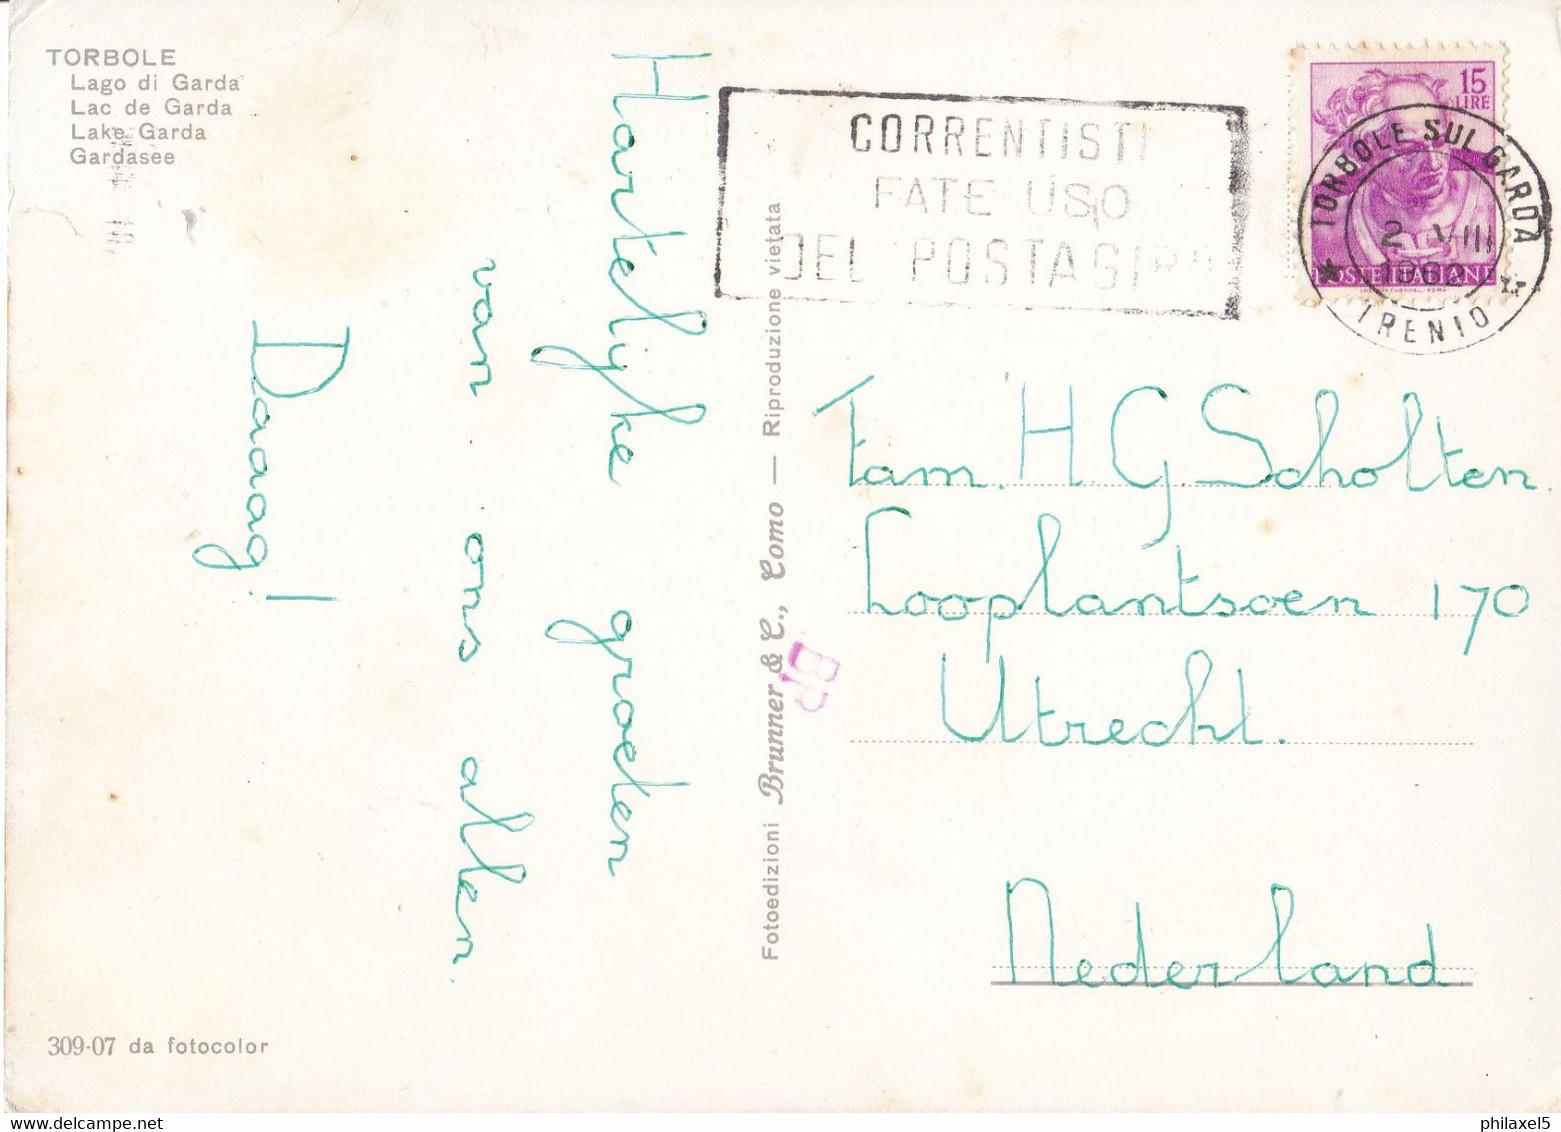 TORBOLE
Lago di Garda
Lac de Garda
Lake Garda
Gardasee
Hartelijke groeten
van ons allen.
Daaag!
309-07 da fotocolor
Fotoedizioni Brunner & C., Como — Riproduzione vietata
CORRENTISTI
FATE USO
DEL POSTAGIRO
15
LIRE
POSTE ITALIANE
TORBOLE SUL GARDA
2 VIII
1962
TRENTO
Fam. H. G. Scholten.
Looplantsoen 170
Utrecht.
Nederland
BP
philaxel5